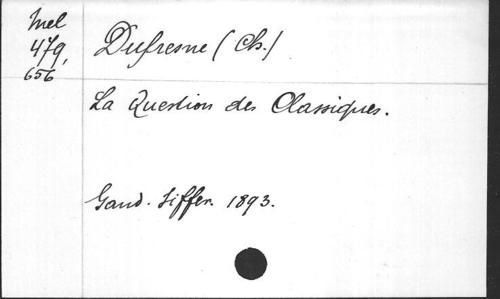 Mel
479,
656
Dufresne (Ch.)
La Question des Classiques.
Gand. Siffer. 1893.